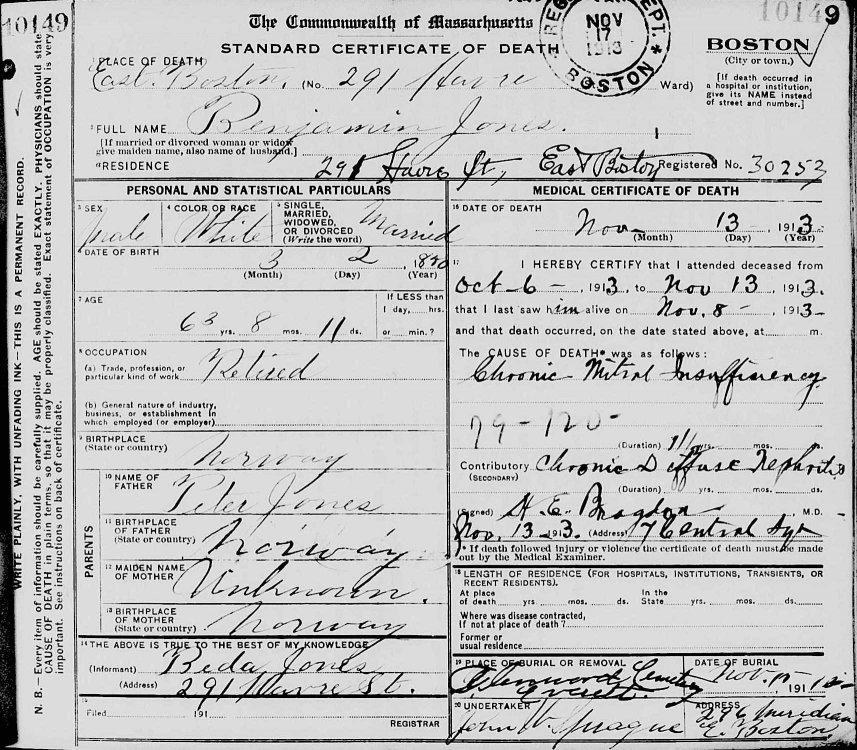 10149
10149
The Commonwealth of Massachusetts
STANDARD CERTIFICATE OF DEATH
NOV
17
1913
BOSTON
BOSTON
(City or town.)
1 PLACE OF DEATH
East Boston, (No. 291 Havre Ward)
[If death occurred in
a hospital or institution,
give its NAME instead
of street and number.]
2 FULL NAME Benjamin Jones.
[If married or divorced woman or widow
give maiden name, also name of husband.]
RESIDENCE 291 Havre St, East Boston Registered No. 30253
PERSONAL AND STATISTICAL PARTICULARS
3 SEX
Male
4 COLOR OR RACE
White
5 SINGLE,
MARRIED,
WIDOWED,
OR DIVORCED
(Write the word)
Married
6 DATE OF BIRTH
3 2, 1850
(Month) (Day) (Year)
7 AGE
63 yrs. 8 mos. 11 ds.
If LESS than
1 day, hrs.
or min.?
8 OCCUPATION
(a) Trade, profession, or
particular kind of work Retired
(b) General nature of industry,
business, or establishment in
which employed (or employer)
9 BIRTHPLACE
(State or country) Norway
PARENTS
10 NAME OF
FATHER Peter Jones
11 BIRTHPLACE
OF FATHER
(State or country) Norway
12 MAIDEN NAME
OF MOTHER Unknown.
13 BIRTHPLACE
OF MOTHER
(State or country) Norway
14 THE ABOVE IS TRUE TO THE BEST OF MY KNOWLEDGE
(Informant) Beda Jones
(Address) 291 Havre St.
15
Filed 191
REGISTRAR
MEDICAL CERTIFICATE OF DEATH
16 DATE OF DEATH
Nov 13, 1913.
(Month) (Day) (Year)
17 I HEREBY CERTIFY that I attended deceased from
Oct-6-, 1913, to Nov 13, 1913.
that I last saw him alive on Nov. 8-, 1913-
and that death occurred, on the date stated above, at m.
The CAUSE OF DEATH* was as follows:
Chronic Mitral Insufficiency
79-120-
(Duration) yrs. mos.
Contributory Chronic Diffuse Nephritis
(SECONDARY)
(Duration) yrs. mos. ds.
(Signed) H. E. Bragdon M.D.
Nov. 13-1913. (Address) 7 Central Sq
* If death followed injury or violence the certificate of death must be made
out by the Medical Examiner.
18 LENGTH OF RESIDENCE (FOR HOSPITALS, INSTITUTIONS, TRANSIENTS, OR
RECENT RESIDENTS).
At place In the
of death yrs. mos. ds. State yrs. mos. ds.
Where was disease contracted,
If not at place of death?
Former or
usual residence
19 PLACE OF BURIAL OR REMOVAL
Glenwood Cemetery
Everett.
DATE OF BURIAL
Nov. 191
20 UNDERTAKER
John W. Sprague
ADDRESS
296 Meridian
E. Boston
WRITE PLAINLY, WITH UNFADING INK—THIS IS A PERMANENT RECORD.
N. B.—Every item of information should be carefully supplied. AGE should be stated EXACTLY. PHYSICIANS should state
CAUSE OF DEATH in plain terms, so that it may be properly classified. Exact statement of OCCUPATION is very
important. See instructions on back of certificate.